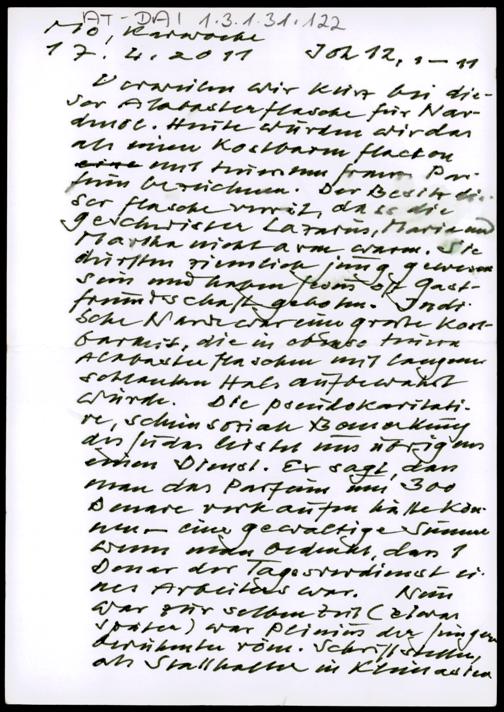 AT-DA! 1.3.1.31.122
Mo, Karwoche
17.4.2011 Joh 12, 1-11
Verweilen wir kurz bei die-
ser Alabasterflasche für Nar-
denöl. Heute würden wir das
als einen kostbaren flacon
mit teurem franz. Par-
füm bezeichnen. Der Besitz die-
ser flasche verrät, dass die
geschwister Lazarus, Maria und
Martha nicht arm waren. Sie
dürften ziemlich jung gewesen
sein und haben Jesus oft Gast-
freundschaft geboten. Indi-
sche Narde war eine große Kost-
barkeit, die in ebenso teuren
Alabasterflaschen mit langem
schlanken Hals aufbewahrt
wurde. Die pseudokaritati-
ve, scheinsoziale Bemerkung
des Judas leistet uns übrigens
einen Dienst. Er sagt, dass
man das Parfüm um 300
Denare verkaufen hätte kön-
nen – eine gewaltige Summe
wenn man bedenkt, dass 1
Denar der Tagesverdienst ei-
nes Arbeiters war. Nun
war zur selben Zeit (etwas
später) war Plinius der Jüngere
berühmter röm. Schriftsteller,
als Statthalter in Kleinasien